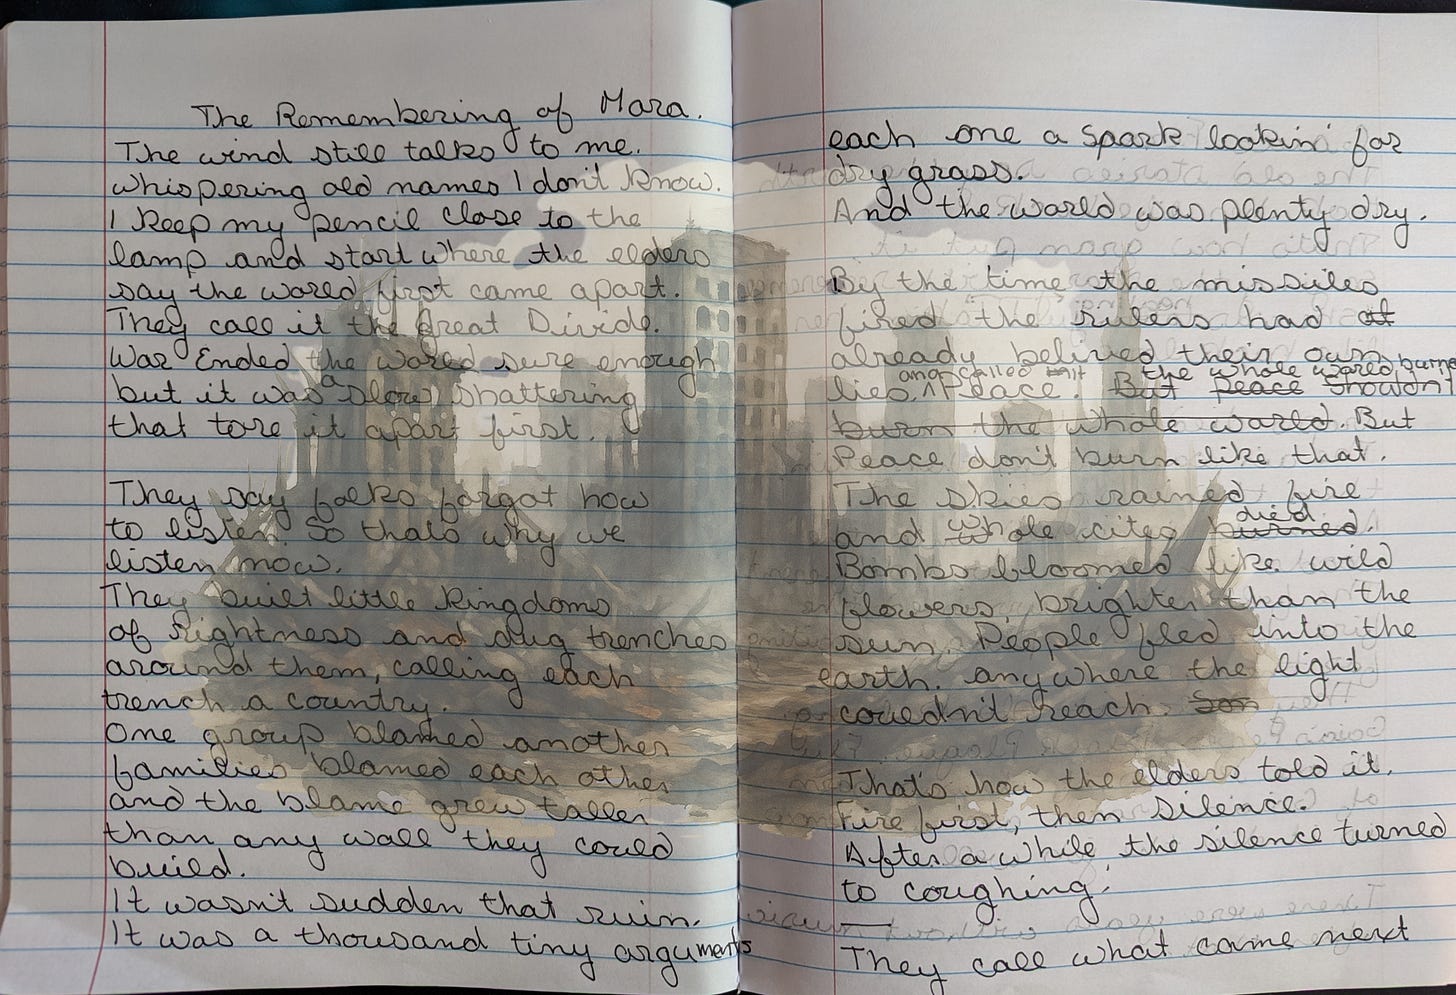 The Remembering of Mara.
The wind still talks to me.
whispering old names I don't know.
I keep my pencil close to the
lamp and start where the elders
say the world first came apart.
They call it the Great Divide.
War Ended the world sure enough
but it was a slow shattering
that tore it apart first.
They say folks forgot how
to listen. So thats why we
listen now.
They built little kingdoms
of rightness and dug trenches
around them, calling each
trench a country.
One group blamed another
families blamed each other
and the blame grew taller
than any wall they could
build.
It wasn't sudden that ruin.
It was a thousand tiny arguments
each one a spark lookin' for
dry grass.
And the world was plenty dry.
By the time the missiles
fired the rulers had at
already belived their own
and called it the whole world burns
lies. Peace. But peace shouldn't
burn the whole world. But
Peace don't burn like that.
The skies rained fire
died
and whole cites burned.
Bombs bloomed like wild
flowers brighter than the
sun. People fled into the
earth. anywhere the light
couldn't reach.
That's how the elders told it.
Fire first, then silence.
After a while the silence turned
to coughing.
They call what came next